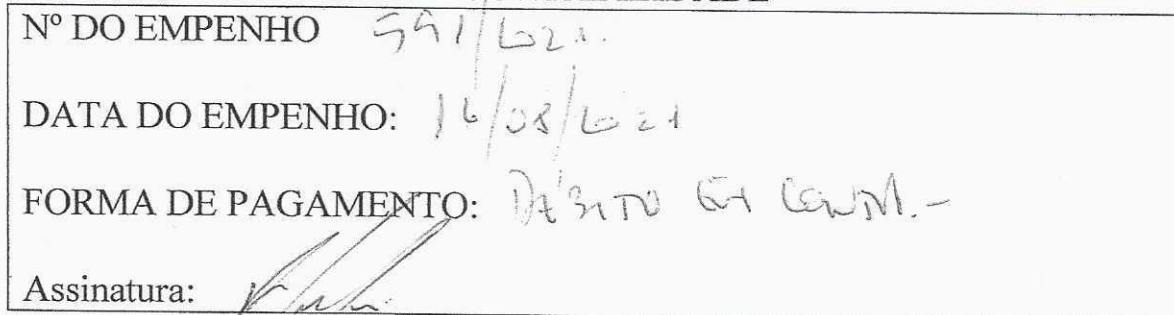 Nº DO EMPENHO 591/2021.
DATA DO EMPENHO: 16/08/2021
FORMA DE PAGAMENTO: DÉBITO EM CONTA.-
Assinatura: